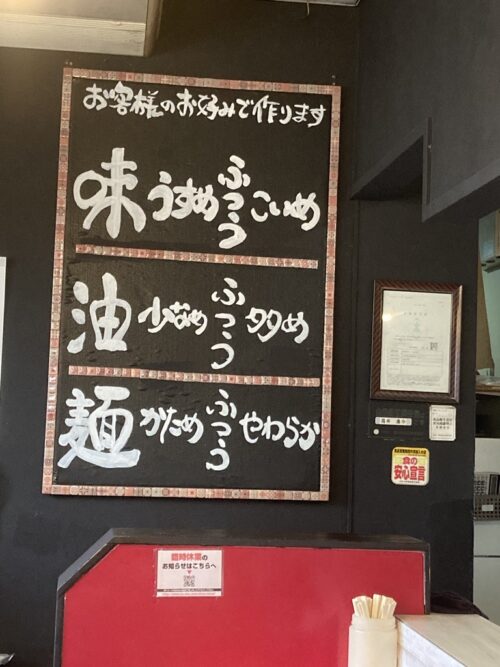 お客様のお好みで作ります
味 うすめ ふつう こいめ
油 少なめ ふつう 多め
麺 かため ふつう やわらか
食の
安心宣言
臨時休業の
お知らせはこちらへ